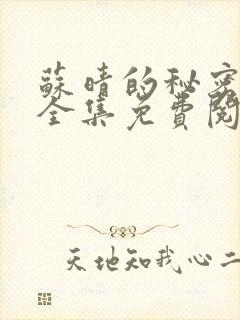 蘇晴的秘密
全集免費閱
天地知我心二